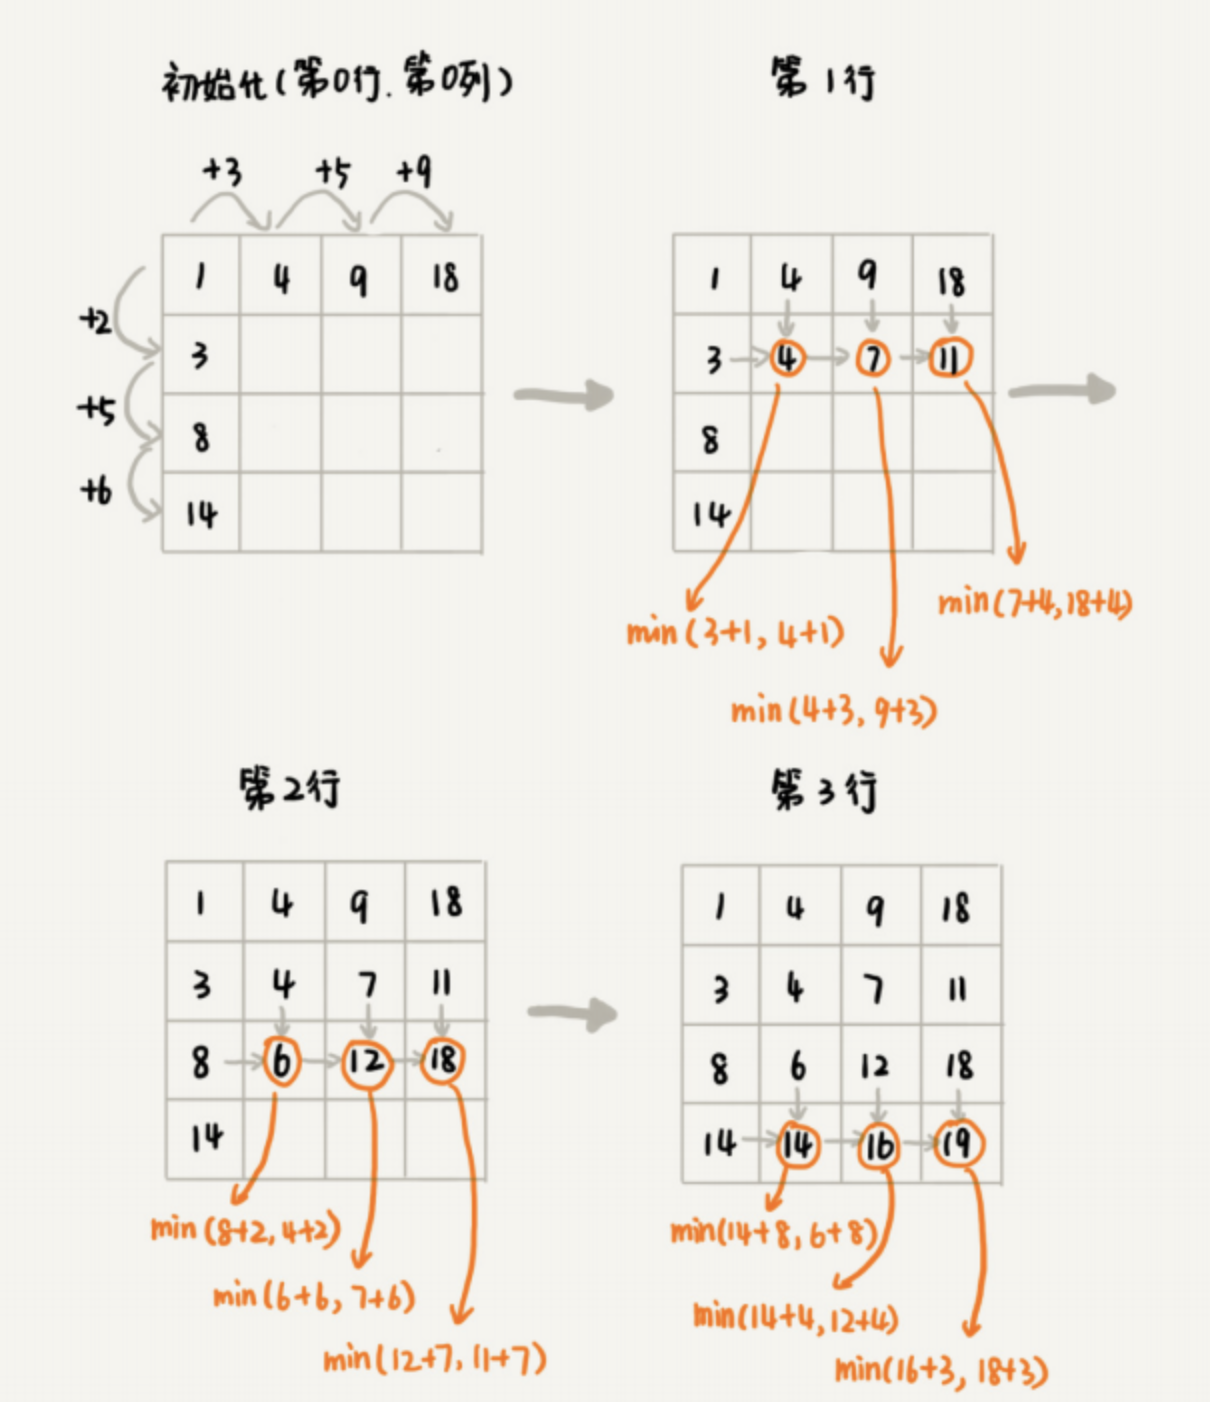 初始化(第0行.第0列)
+3 +5 +9
1 4 9 18
+2
3
+5
8
+6
14
第1行
1 4 9 18
3 4 7 11
8
14
min(7+4,18+4)
min(3+1,4+1)
min(4+3,9+3)
第2行
1 4 9 18
3 4 7 11
8 6 12 18
14
min(8+2,4+2)
min(6+6,7+6)
min(12+7,11+7)
第3行
1 4 9 18
3 4 7 11
8 6 12 18
14 14 16 19
min(14+8,6+8)
min(14+4,12+4)
min(16+3,18+3)